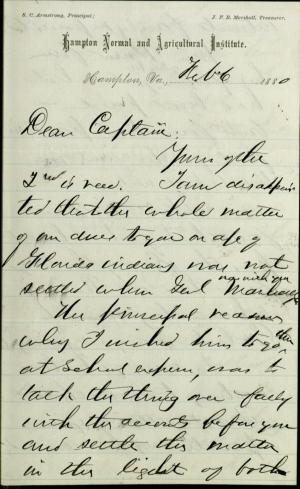 S. C. Armstrong, Principal; J. F. B. Marshall, Treasurer.
Hampton Normal and Agricultural Institute.
Hampton, Va., Feb 6 1880
Dear Captain:
Yours of the
2nd is recd. I am disappoin
ted that the whole matter
of our dues to you on a/c of
Florida indians was not
settled when Genl Marshall
was with you
The principal reason
why I wished him to go then
at School expense, was to
talk the thing over fully
with the accounts before you
and settle the matter
in the light of both